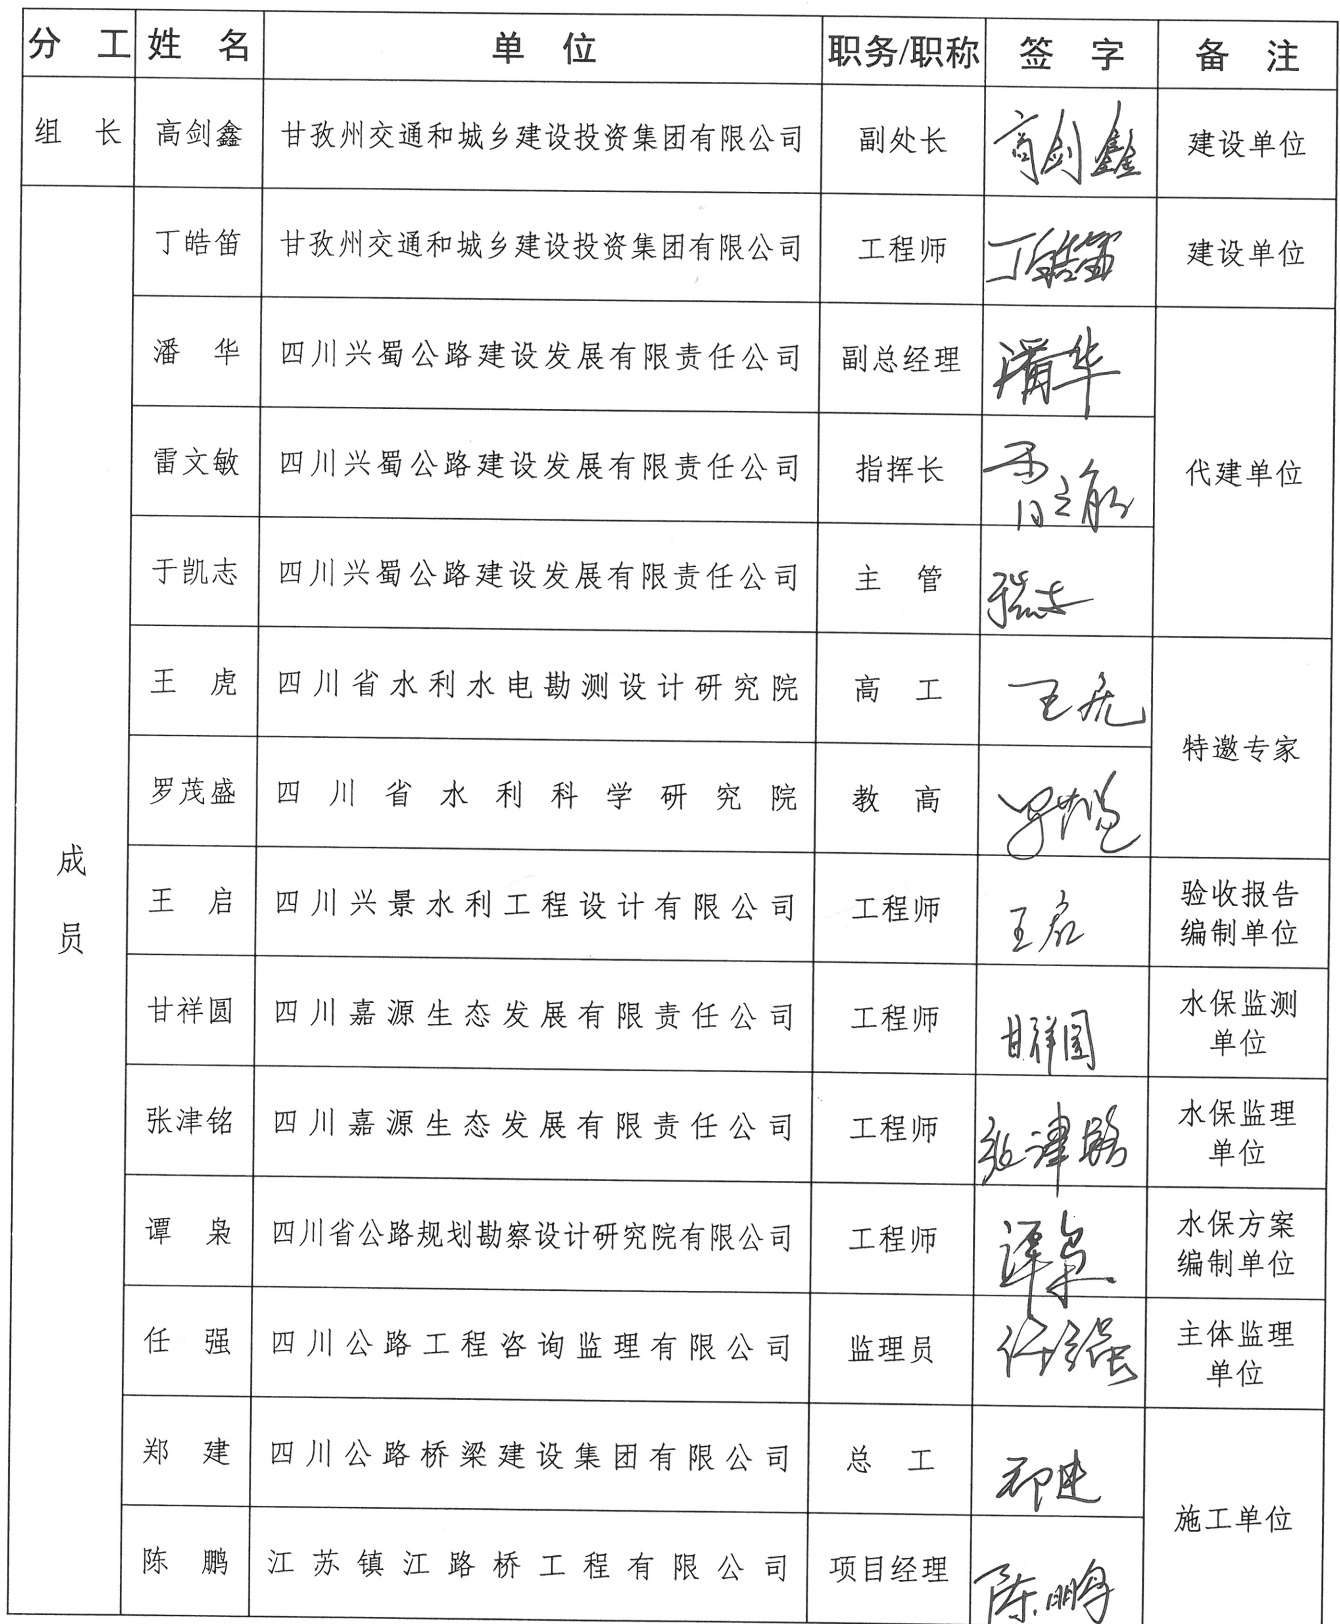 分 工 姓 名 单 位 职务/职称 签 字 备 注
组 长 高剑鑫 甘孜州交通和城乡建设投资集团有限公司 副处长 高剑鑫 建设单位
丁皓笛 甘孜州交通和城乡建设投资集团有限公司 工程师 丁皓笛 建设单位
潘 华 四川兴蜀公路建设发展有限责任公司 副总经理 潘华
雷文敏 四川兴蜀公路建设发展有限责任公司 指挥长 雷文敏 代建单位
于凯志 四川兴蜀公路建设发展有限责任公司 主 管 于凯志
王 虎 四川省水利水电勘测设计研究院 高 工 王虎
特邀专家
罗茂盛 四川省水利科学研究院 教 高 罗茂盛
成
员
王 启 四川兴景水利工程设计有限公司 工程师 王启 验收报告
编制单位
甘祥圆 四川嘉源生态发展有限责任公司 工程师 甘祥圆 水保监测
单位
张津铭 四川嘉源生态发展有限责任公司 工程师 张津铭 水保监理
单位
谭 枭 四川省公路规划勘察设计研究院有限公司 工程师 谭枭 水保方案
编制单位
任 强 四川公路工程咨询监理有限公司 监理员 任强 主体监理
单位
郑 建 四川公路桥梁建设集团有限公司 总 工 郑建
施工单位
陈 鹏 江苏镇江路桥工程有限公司 项目经理 陈鹏